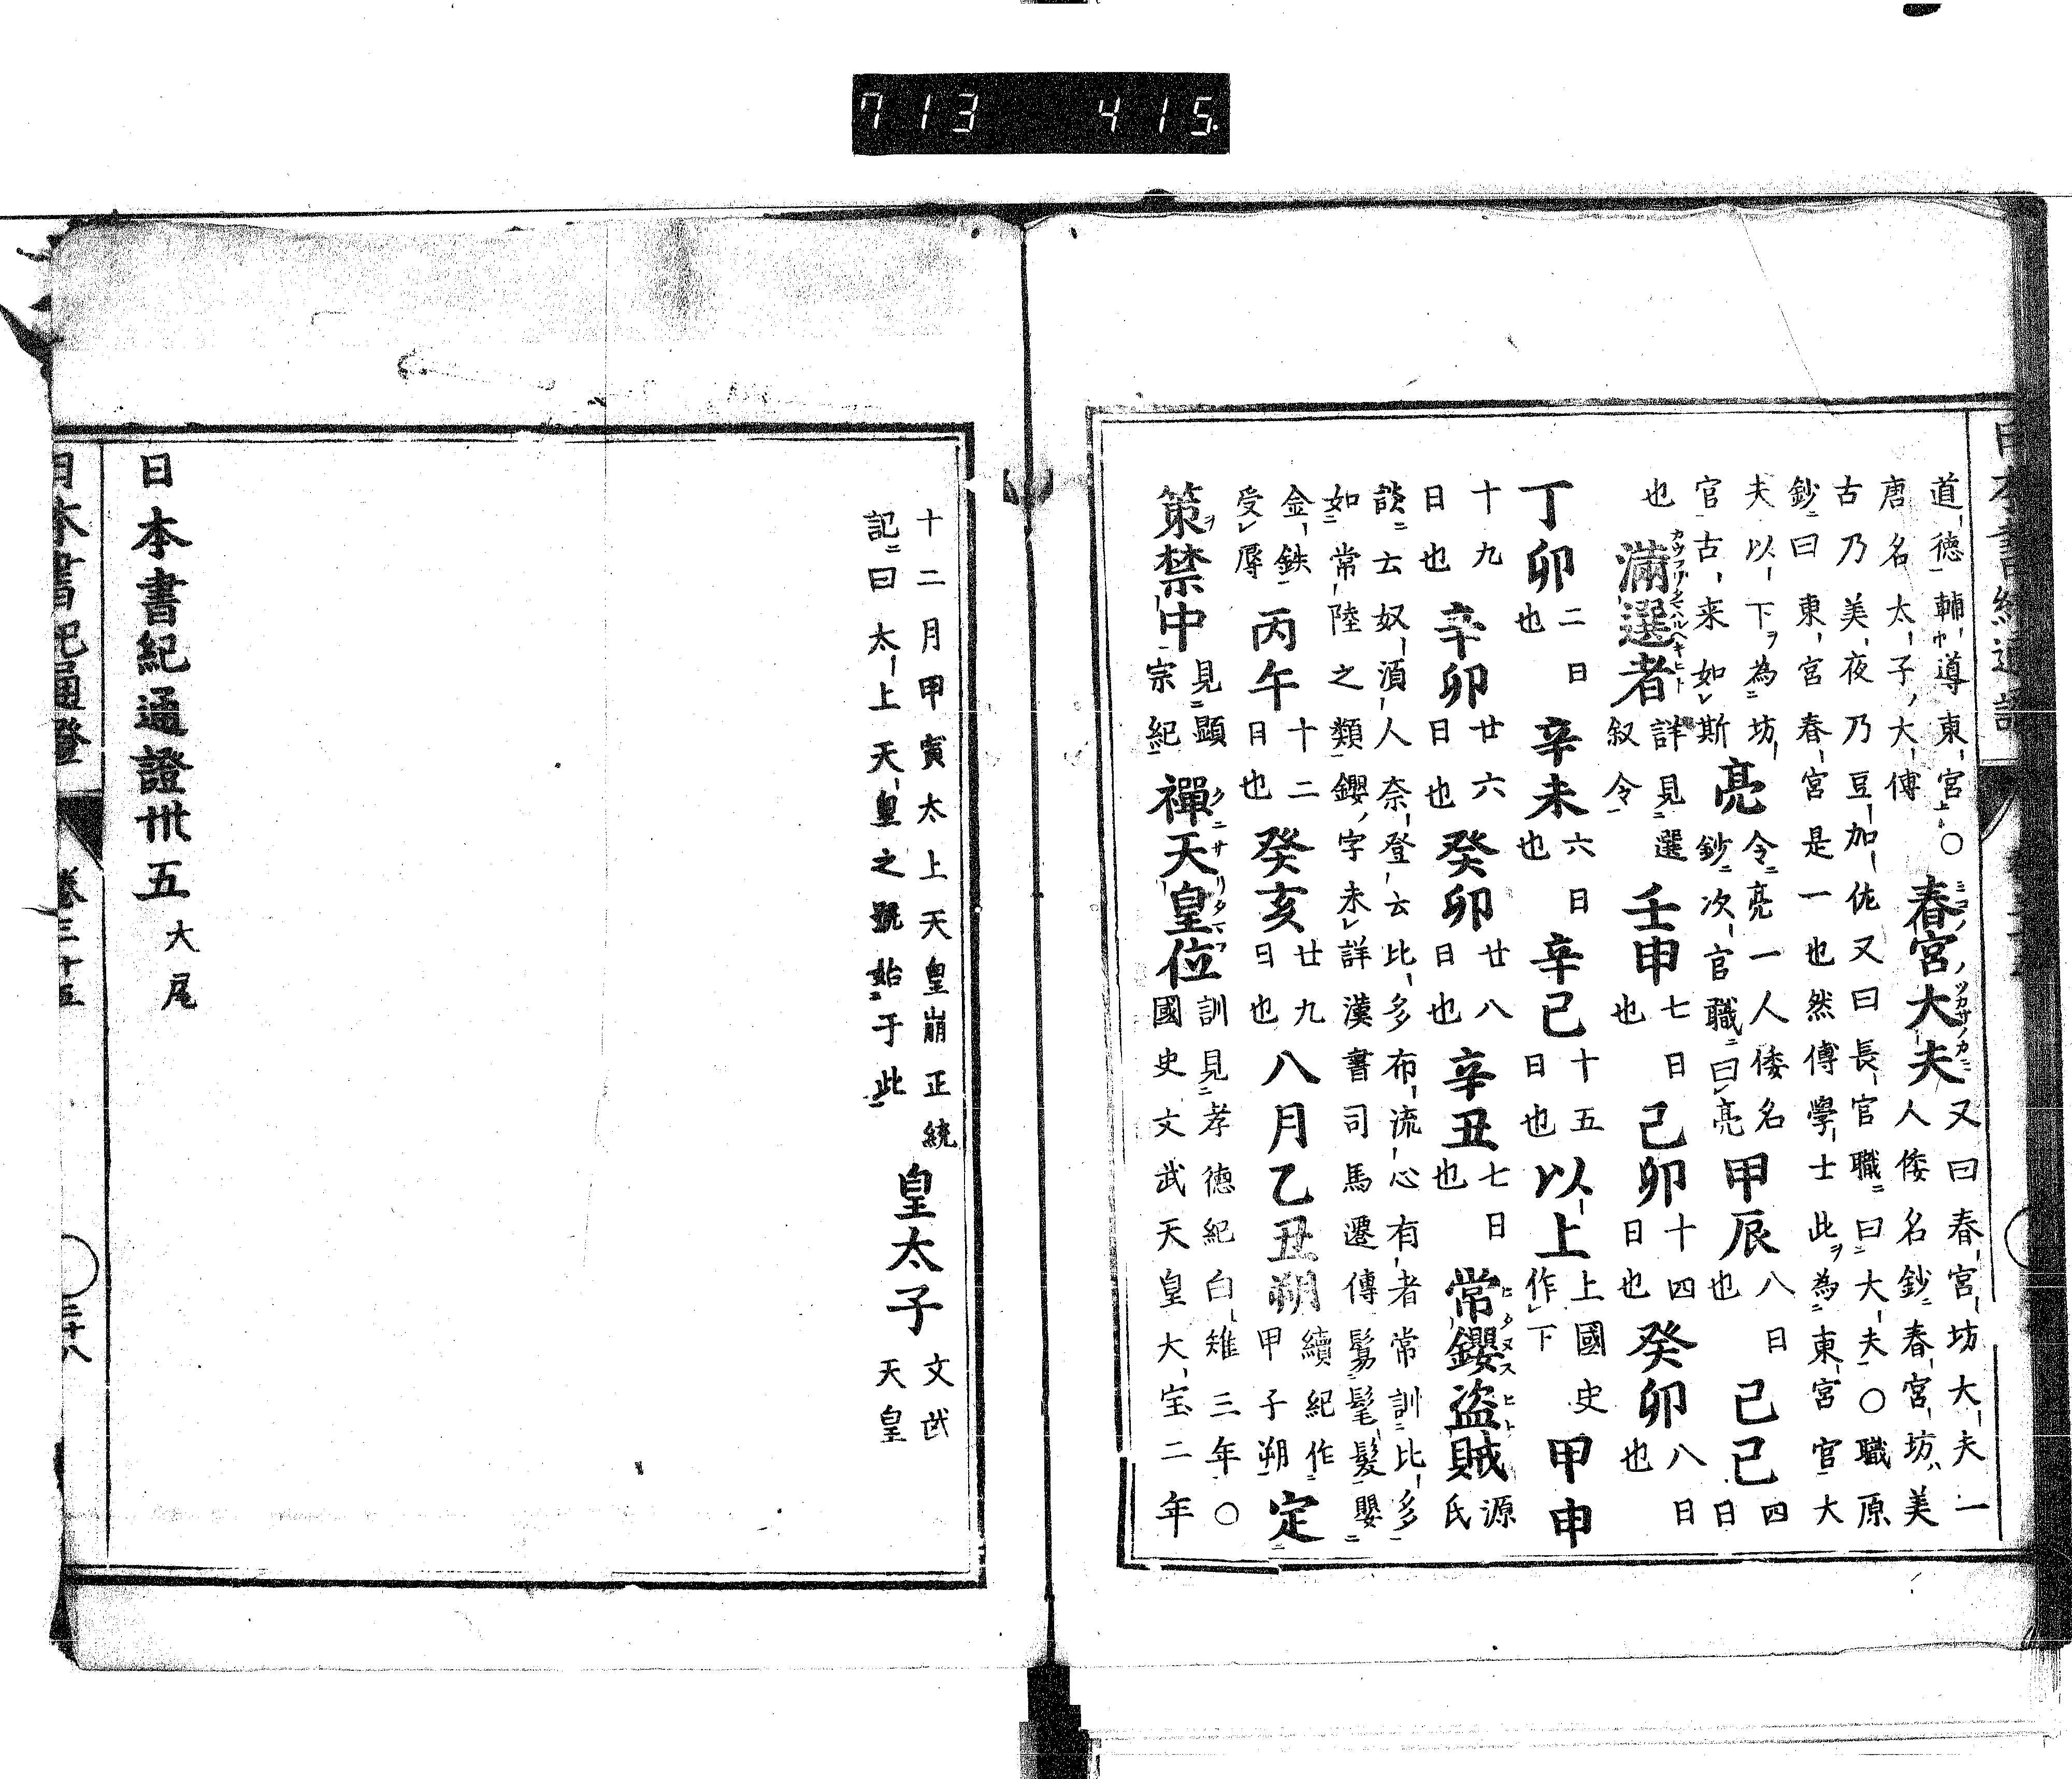 日本書紀通證
道德輔導東宮上
唐名太子大傅
○春宮大夫
又曰春宮坊大夫一
人倭名鈔春宮坊美
古乃美夜乃豆加佐又曰長官職曰大夫○職原
鈔曰東宮春宮是一也然傅學士此為東宮官大
夫以下ヲ為坊
官古来如斯
亮
令亮一人倭名
鈔次官職曰亮
甲辰
八日
也
己巳
四
日
也
満選者
詳見選
叙令
壬申
七日
也
己卯
十四
日也
癸卯
八日
也
丁卯
二日
也
辛未
六日
也
辛巳
十五
日也
以上
上國史
作下
甲申
十九
日也
辛卯
廿六
日也
癸卯
廿八
日也
辛丑
七日
也
常鑍盜賊
源
氏
談云奴湏人奈登云比多布流心有者常訓比多
如常陸之類鑍字未詳漢書司馬遷傳鬄髦髮嬰
金鉄
受辱
丙午
十二
日也
癸亥
廿九
日也
八月乙丑朔
續紀作
甲子朔
定
策禁中
見顯
宗紀
禪天皇位
訓見孝德紀白雉三年○
國史文武天皇大宝二年
十二月甲寅太上天皇崩正統
記曰太上天皇之號始于此
皇太子
文武
天皇
日本書紀通證卅五大尾
日本書紀通證
卷三十五
三十八
713 415